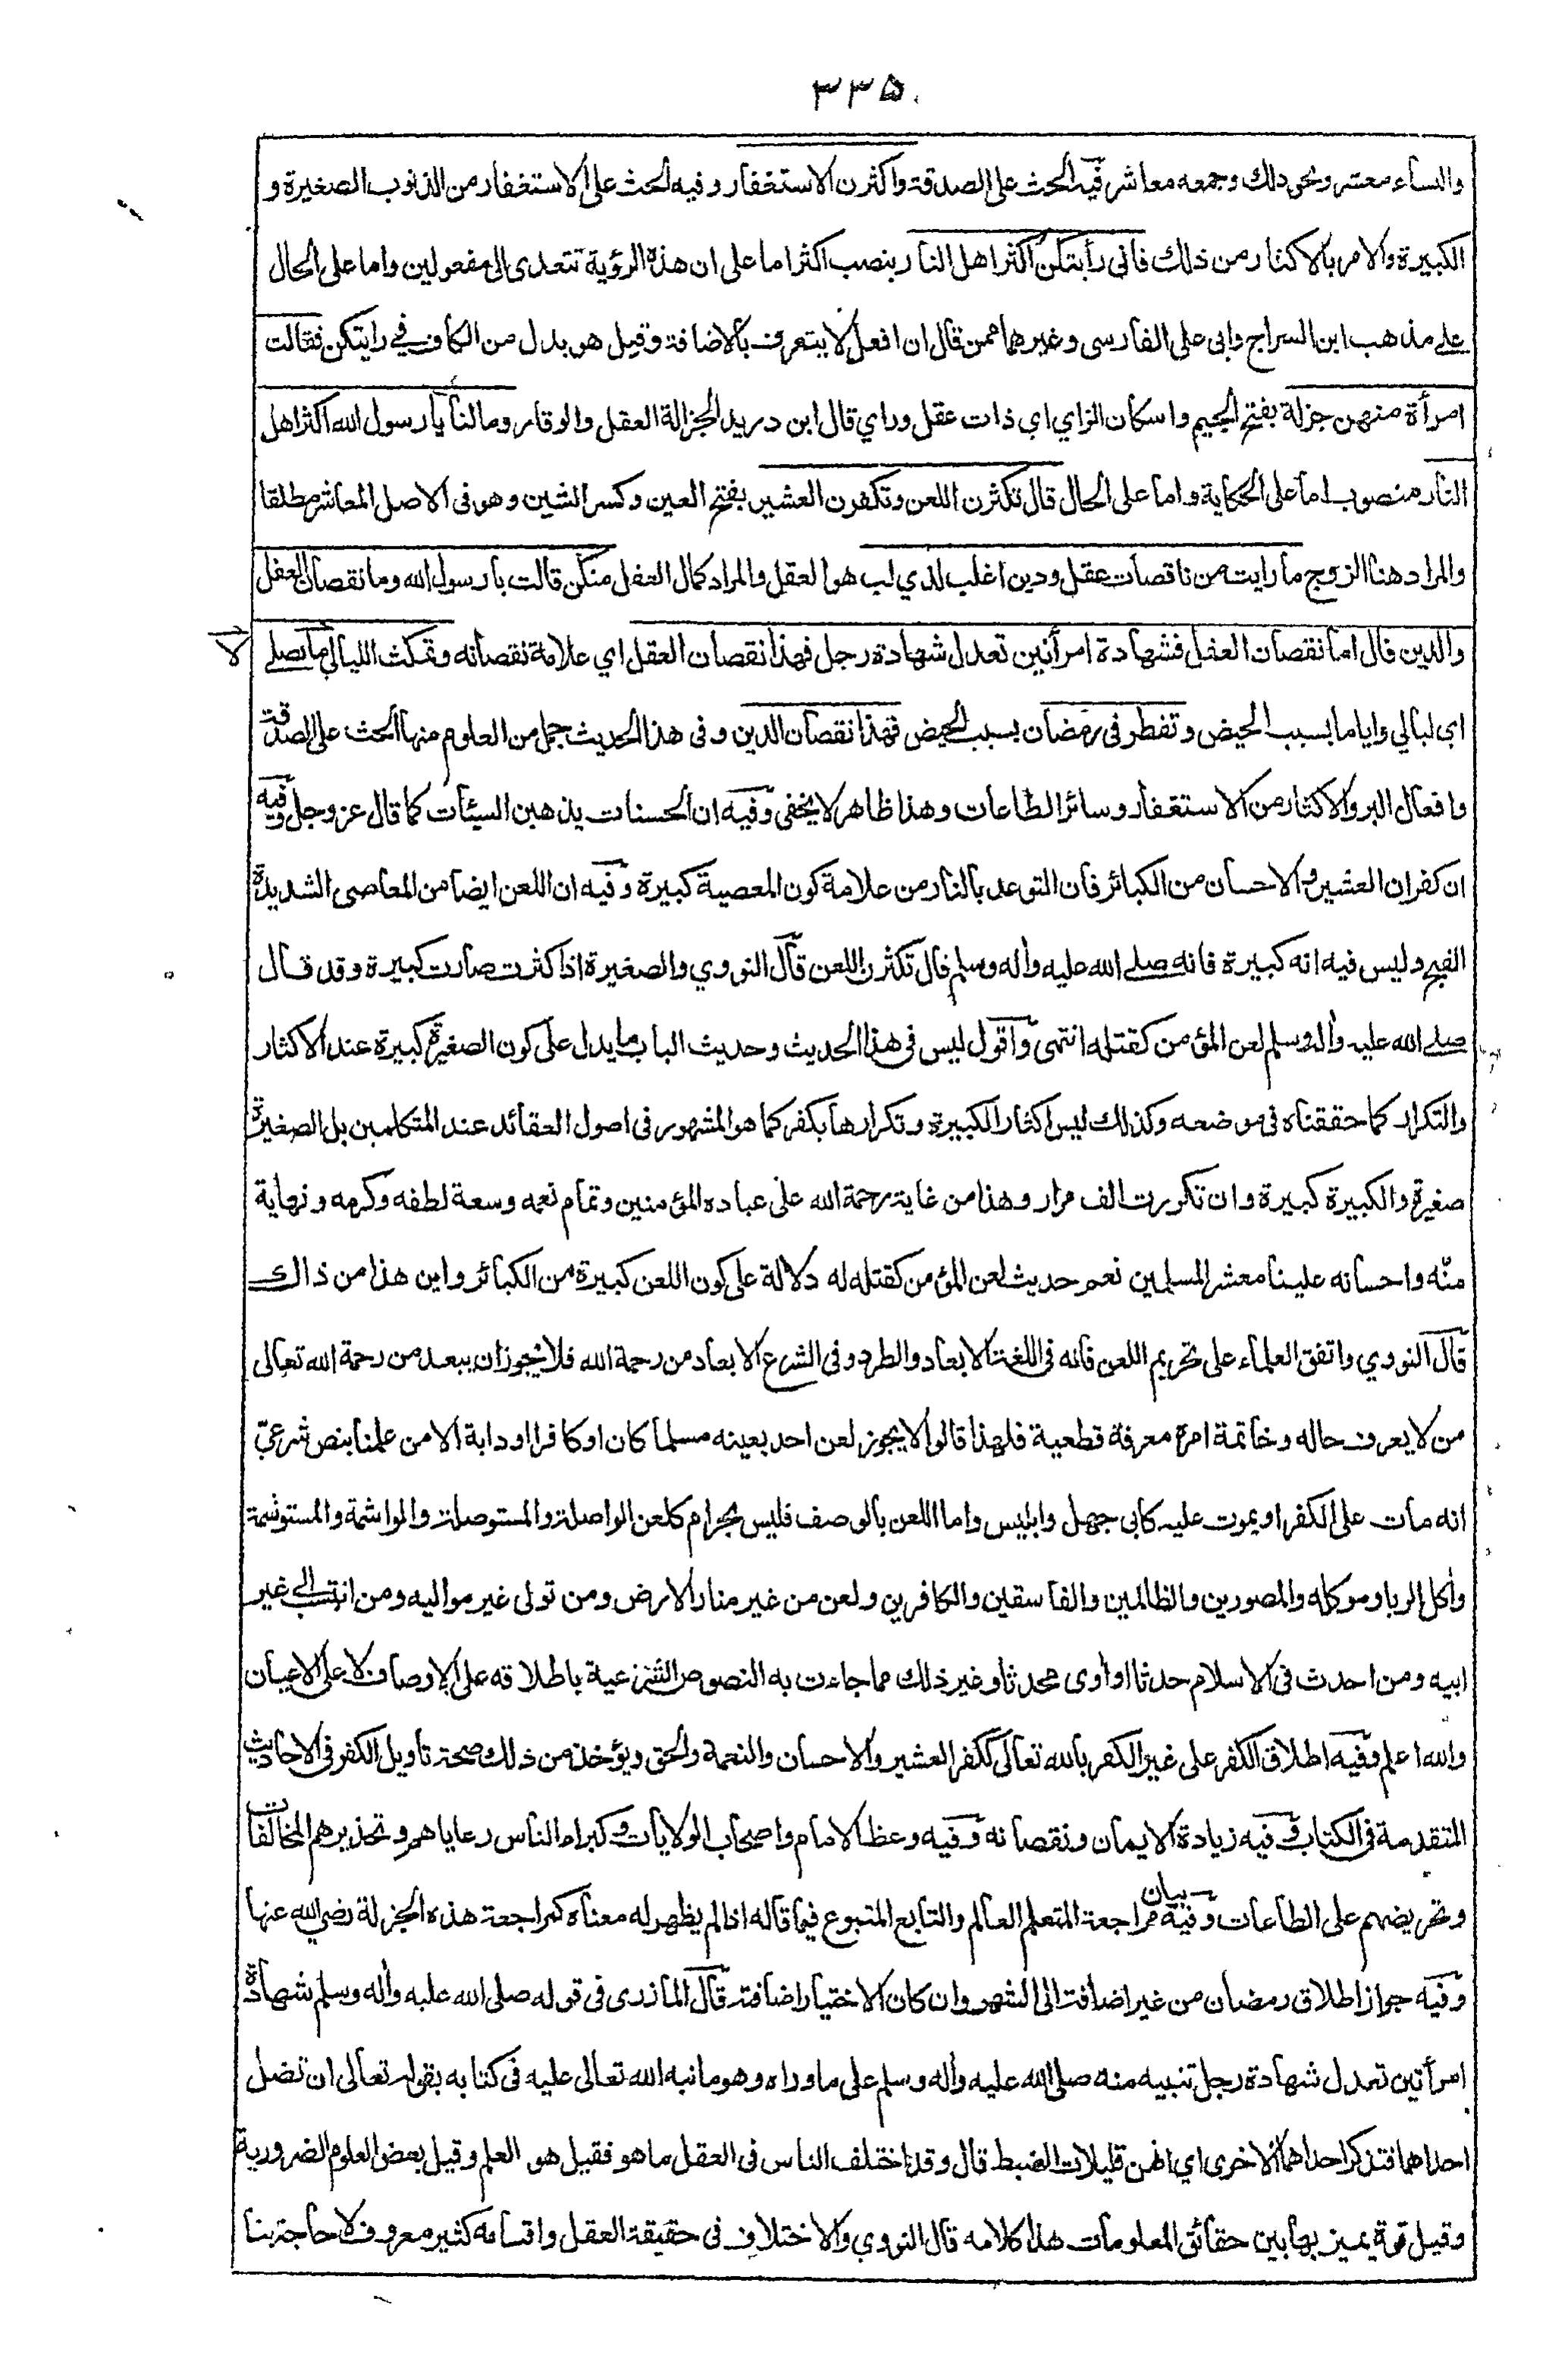 ٣٣٥
والنساء معشر ونحو ذلك وجمعه معاشر فيه الحث على الصدقة واكثرن الاستغفار وفيه الحث على الاستغفار من الذنوب الصغيرة و
الكبيرة والامر بالاكثار من ذلك فاني رأيتكن اكثر اهل النار بنصب اكثر اما على ان هذه الرؤية تتعدى الى مفعولين واما على الحال
على مذهب ابن السراج وابى على الفارسى وغيرهما ممن قال ان افعل لا يتعرف بالاضافة وقيل هو بدل من الكاف في رايتكن فقالت
امرأة منهن جزلة بفتح الجيم واسكان الزاي اي ذات عقل وراي قال ابن دريد الجزالة العقل والوقار ومالنا يا رسول الله اكثر اهل
النار منصوب اما على الحكاية واما على الحال قال تكثرن اللعن وتكفرن العشير بفتح العين وكسر الشين وهو فى الاصل المعاشر مطلقا
والمراد هنا الزوج ما رايت من ناقصات عقل ودين اغلب لذي لب هو العقل والمراد كمال العقل منكن قالت يا رسول الله وما نقصان العقل
والدين قال اما نقصان العقل فشهادة امرأتين تعدل شهادة رجل فهذا نقصان العقل اي علامة نقصانه وتمكث الليالي ما تصلي
لا
اي ليالي واياما بسبب الحيض وتفطر فى رمضان بسبب الحيض فهذا نقصان الدين وفى هذا الحديث جمل من العلوم منها الحث على الصدقة
وافعال البر والاكثار من الاستغفار وسائر الطاعات وهذا ظاهر لا يخفى وفيه ان الحسنات يذهبن السيئات كما قال عز وجل وفيه
ان كفران العشير والاحسان من الكبائر فان التوعد بالنار من علامة كون المعصية كبيرة وفيه ان اللعن ايضا من المعاصى الشديدة
القبح وليس فيه انه كبيرة فانه صلى الله عليه واله وسلم قال تكثرن اللعن قال النووي والصغيرة اذا كثرت صارت كبيرة وقد قال
صلى الله عليه واله وسلم لعن المؤمن كقتله انتهى واقول ليس فى هذا الحديث وحديث الباب ما يدل على كون الصغيرة كبيرة عند الاكثار
والتكرار كما حققناه فى موضعه وكذلك ليس اكثار الكبيرة وتكرارها بكفر كما هو المشهور فى اصول العقائد عند المتكلمين بل الصغيرة
صغيرة والكبيرة كبيرة وان تكررت الف مرار وهذا من غاية رحمة الله على عباده المؤمنين وتمام نعمه وسعة لطفه وكرمه ونهاية
منّه واحسانه علينا معشر المسلمين نعم حديث لعن المؤمن كقتله له دلالة على كون اللعن كبيرة من الكبائر واين هذا من ذالك
قال النووي واتفق العلماء على تحريم اللعن فانه فى اللغة الابعاد والطرد وفى الشرع الابعاد من رحمة الله فلا يجوز ان يبعد من رحمة الله تعالى
من لا يعرف حاله وخاتمة امره معرفة قطعية فلهذا قالوا لا يجوز لعن احد بعينه مسلما كان او كافرا او دابة الا من علمنا بنص شرعيّ
انه مات على الكفر او يموت عليه كابى جهل وابليس واما اللعن بالوصف فليس بحرام كلعن الواصلة والمستوصلة والواشمة والمستوشمة
واكل الربا وموكله والمصورين والظالمين والفاسقين والكافرين ولعن من غير منار الارض ومن تولى غير مواليه ومن انتسب الى غير
ابيه ومن احدث فى الاسلام حدثا او اوى محدثا وغير ذلك مما جاءت به النصوص الشرعية باطلاقه على الاوصاف لا على الاعيان
والله اعلم وفيه اطلاق الكفر على غير الكفر بالله تعالى ككفر العشير والاحسان والنعمة والحق ويؤخذ من ذلك صحة تأويل الكفر فى الاحاديث
المتقدمة فى الكتاب وفيه زيادة الايمان ونقصانه وفيه وعظ الامام واصحاب الولايات وكبراء الناس رعاياهم وتحذيرهم المخالفات
وتحريضهم على الطاعات وفيه بيان مراجعة المتعلم العالم والتابع المتبوع فيما قاله اذا لم يظهر له معناه كمراجعة هذه الجزلة رضي الله عنها
وفيه جواز اطلاق رمضان من غير اضافة الى الشهر وان كان الاختيار اضافته قال المازرى فى قوله صلى الله عليه واله وسلم شهادة
امرأتين تعدل شهادة رجل تنبيه منه صلى الله عليه واله وسلم على ما وراه وهو ما نبه الله تعالى عليه فى كتابه بقوله تعالى ان تضل
احداهما فتذكر احداهما الاخرى اي انهن قليلات الضبط قال وقد اختلف الناس فى العقل ما هو فقيل هو العلم وقيل بعض العلوم الضرورية
وقيل قوة يميز بها بين حقائق المعلومات هذا كلامه قال النووي والاختلاف فى حقيقة العقل واقسامه كثير معروف لا حاجة بنا